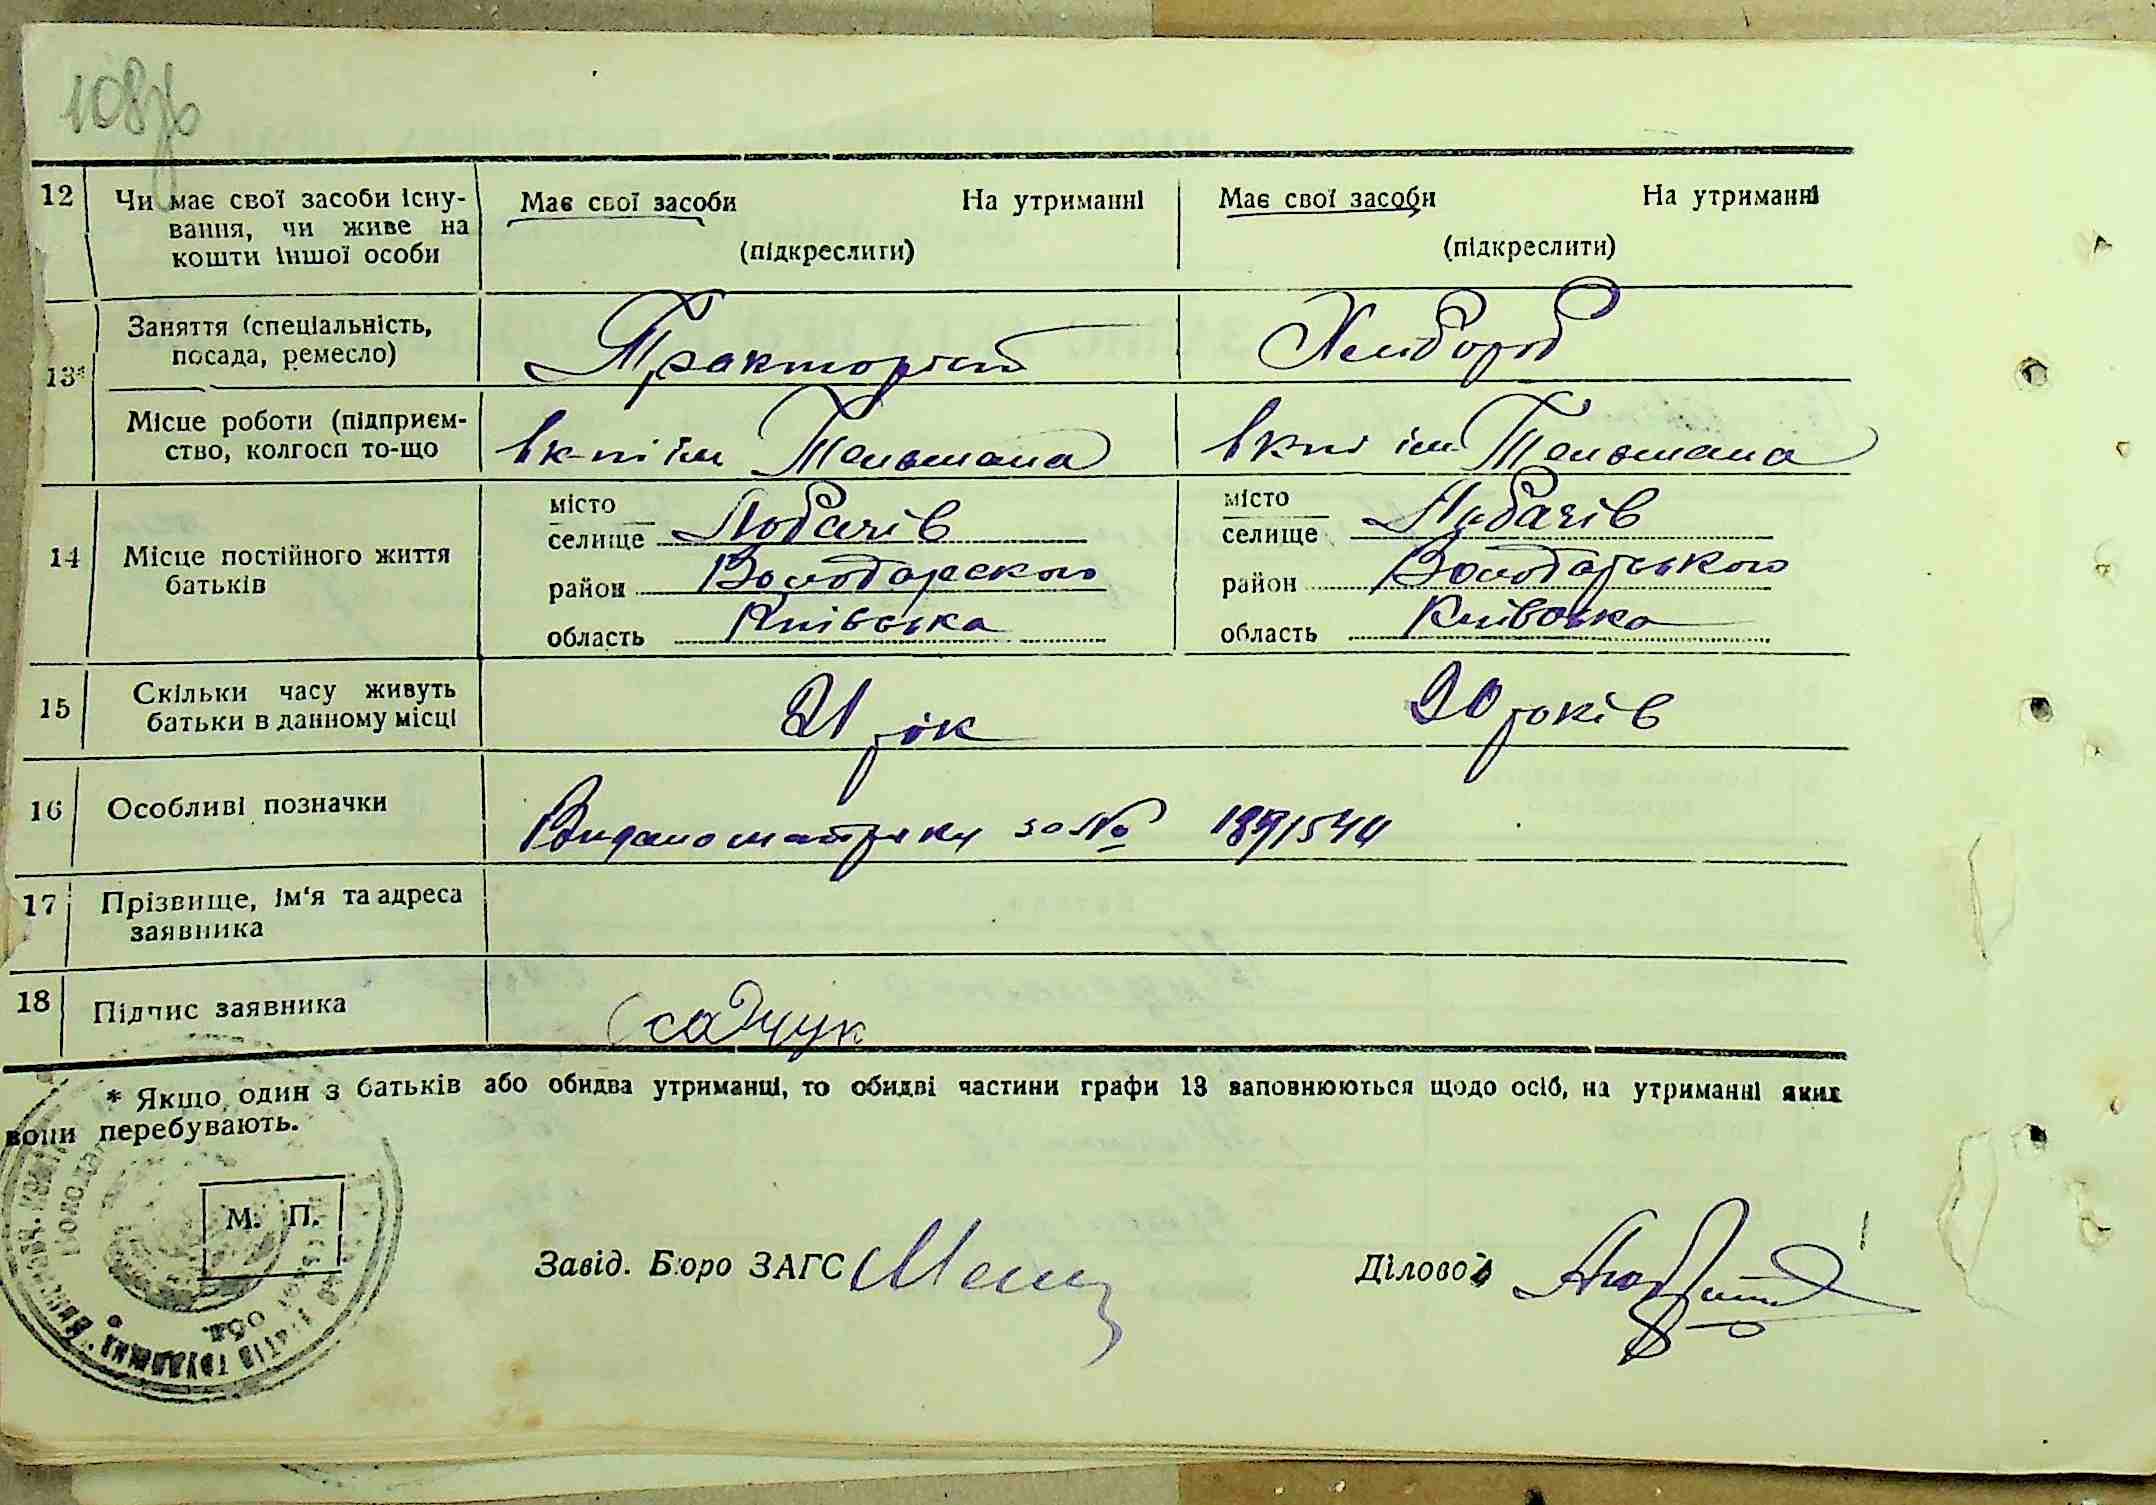 108зв
12 Чи має свої засоби існу-
вання, чи живе на
кошти іншої особи
Має свої засоби На утриманні
(підкреслити)
Має свої засоби На утриманні
(підкреслити)
13*
Заняття (спеціальність,
посада, ремесло)
Тракторіст
Хлібороб
Місце роботи (підприєм-
ство, колгосп то-що
в к-пі ім Тельмана
в кпі ім Тельмана
14 Місце постійного життя
батьків
місто
селище Лобачів
район Володарского
область Київська
місто
селище Лобачів
район Володарського
область Київська
15 Скільки часу живуть
батьки в данному місці
21 рік
20 років
16 Особливі позначки
за №
17 Прізвище, ім'я та адреса
заявника
18 Підпис заявника
Осадчук
* Якщо один з батьків або обидва утриманці, то обидві частини графи 13 заповнюються щодо осіб, на утриманні яких
вони перебувають.
М. П.
Завід. Бюро ЗАГС
Діловод